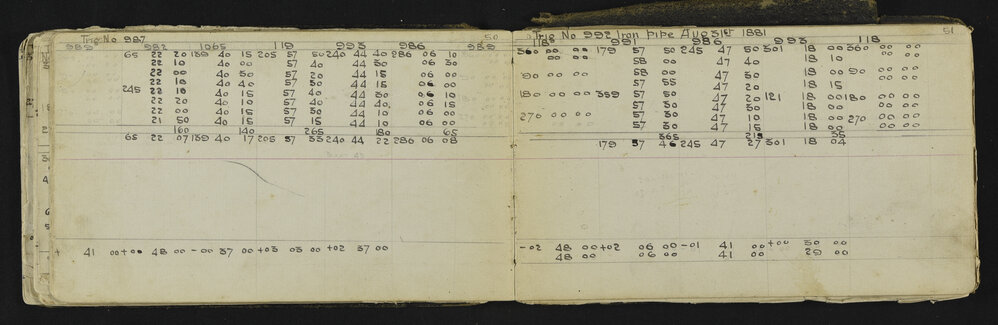 Trig No 987 50
989 982 1065 119 993 986 989
65 22 20 139 40 15 205 57 50 240 44 40 286 06 10
22 10 40 00 57 40 44 30 06 30
22 00 40 30 57 20 44 15 06 00
22 10 40 40 57 30 44 15 06 00
245 22 10 40 15 57 40 44 30 06 10
22 20 40 10 57 40 44 40 06 15
22 00 40 15 57 30 44 10 06 00
21 50 40 15 57 15 44 10 06 00
160 140 265 180 65
65 22 07 139 40 17 205 57 33 240 44 22 286 06 08
+ 41 00 +00 48 00 -00 37 00 +03 03 00 +02 37 00
Trig No 992 Iron Pipe Aug 31st 1881 51
118 991 986 993 118
360 00 00 179 57 50 245 47 50 301 18 00 360 00 00
00 00 58 00 47 40 18 10
90 00 00 58 00 47 30 18 00 90 00 00
57 55 47 20 18 15
180 00 00 359 57 50 47 20 121 18 00 180 00 00
57 30 47 30 18 00
270 00 00 57 30 47 10 18 00 270 00 00
57 30 47 15 18 00
365 215 35
179 57 46 245 47 27 301 18 04
-02 48 00 +02 06 00 -01 41 00 +00 30 00
48 00 06 00 41 00 29 00